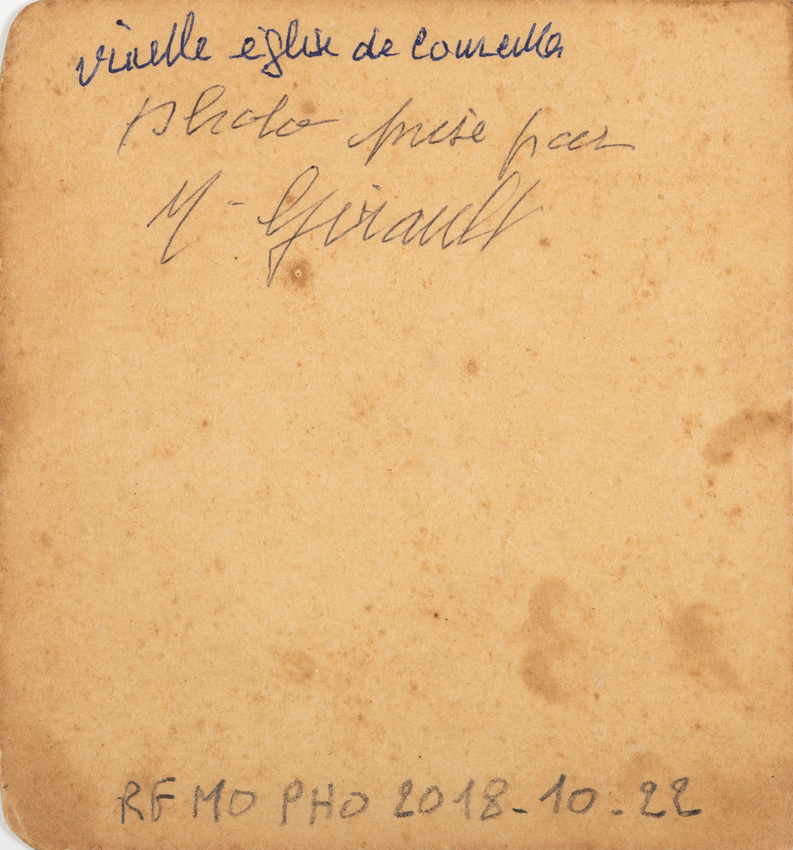 vieille église de Courcelles
photo prise par
M - Girault
RF MO PHO 2018-10-22